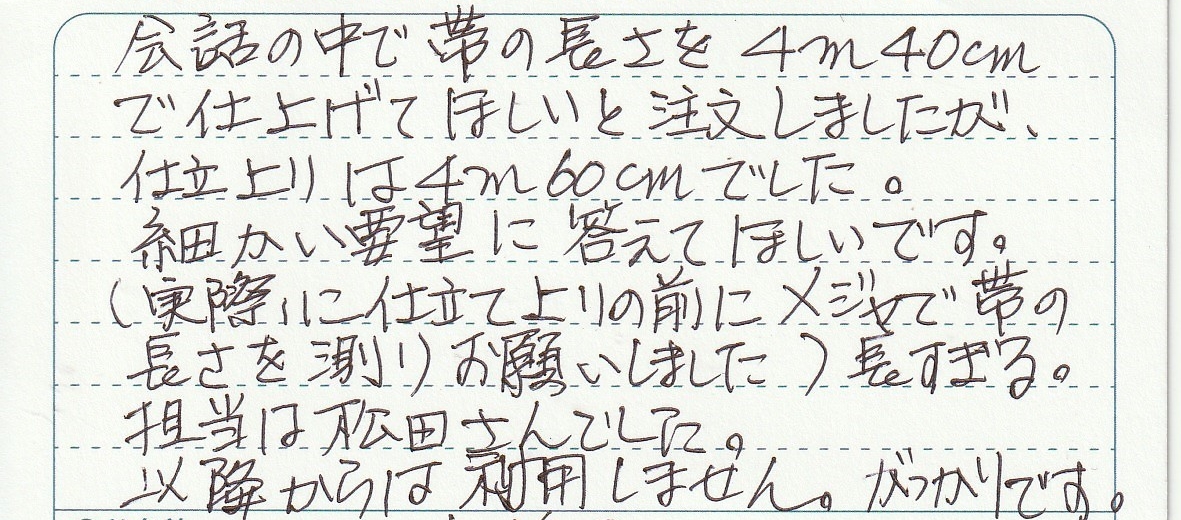 会話の中で帯の長さを4m40cm
で仕上げてほしいと注文しましたが、
仕立上りは4m60cmでした。
細かい要望に答えてほしいです。
(実際に仕立て上りの前にメジャで帯の
長さを測りお願いしました)長すぎる。
担当は松田さんでした。
以降からは利用しません。がっかりです。